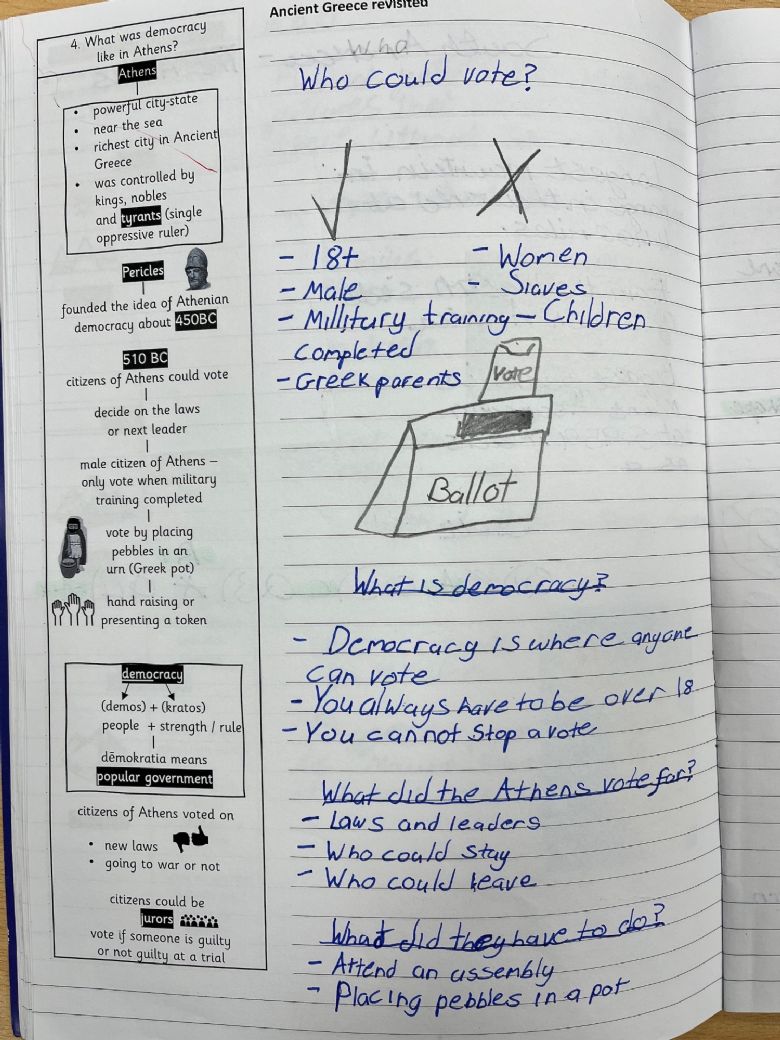 Ancient Greece revisited
4. What was democracy
like in Athens?
Athens
• powerful city-state
• near the sea
• richest city in Ancient
Greece
• was controlled by
kings, nobles
and tyrants (single
oppressive ruler)
Pericles
founded the idea of Athenian
democracy about 450BC
510 BC
citizens of Athens could vote
decide on the laws
or next leader
male citizen of Athens –
only vote when military
training completed
vote by placing
pebbles in an
urn (Greek pot)
hand raising or
presenting a token
democracy
(demos) + (kratos)
people + strength / rule
dēmokratia means
popular government
citizens of Athens voted on
• new laws
• going to war or not
citizens could be
jurors
vote if someone is guilty
or not guilty at a trial
Who could vote?
- 18+
- Male
- Millitury training
completed
- Greek parents
- Women
- Slaves
- Children
Vote
Ballot
What is democracy?
- Democracy is where anyone
can vote
- You always have to be over 18
- You cannot stop a vote
What did the Athens vote for?
- Laws and leaders
- Who could stay
- Who could leave
What did they have to do?
- Attend an assembly
- Placing pebbles in a pot